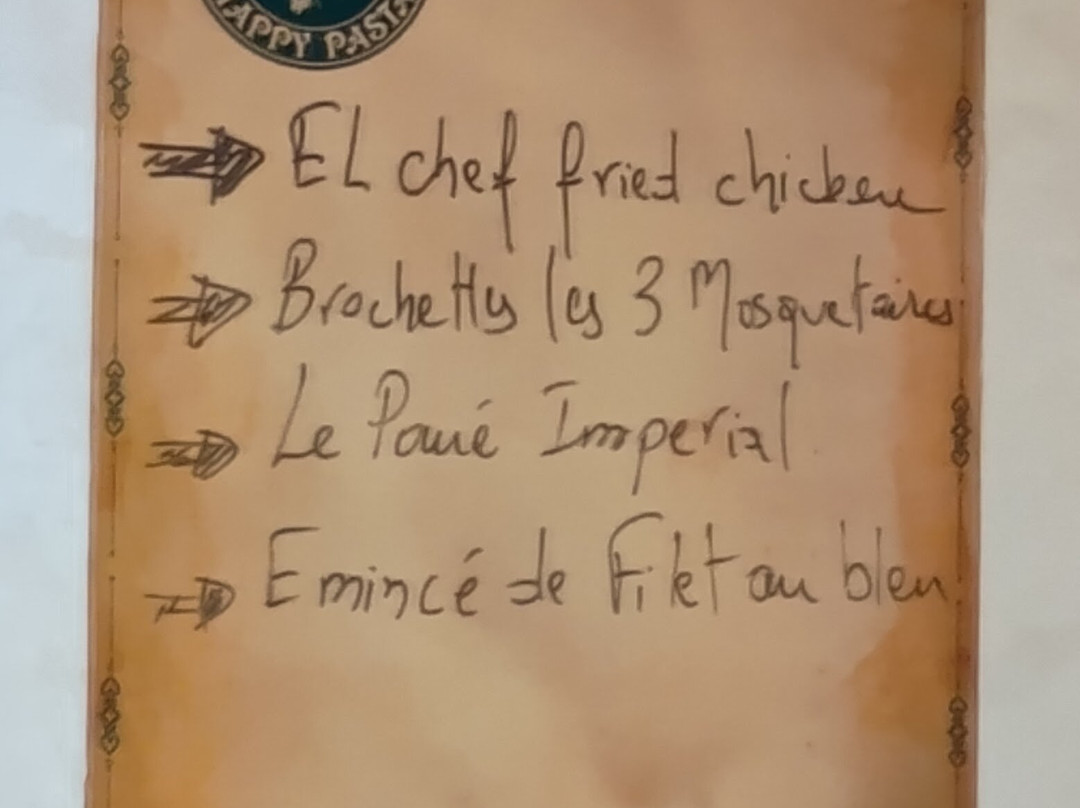 HAPPY PASTA
EL chef fried chicken
Brochettes les 3 Mosquetaires
Le Pavé Imperial
Emincé de Filet au bleu